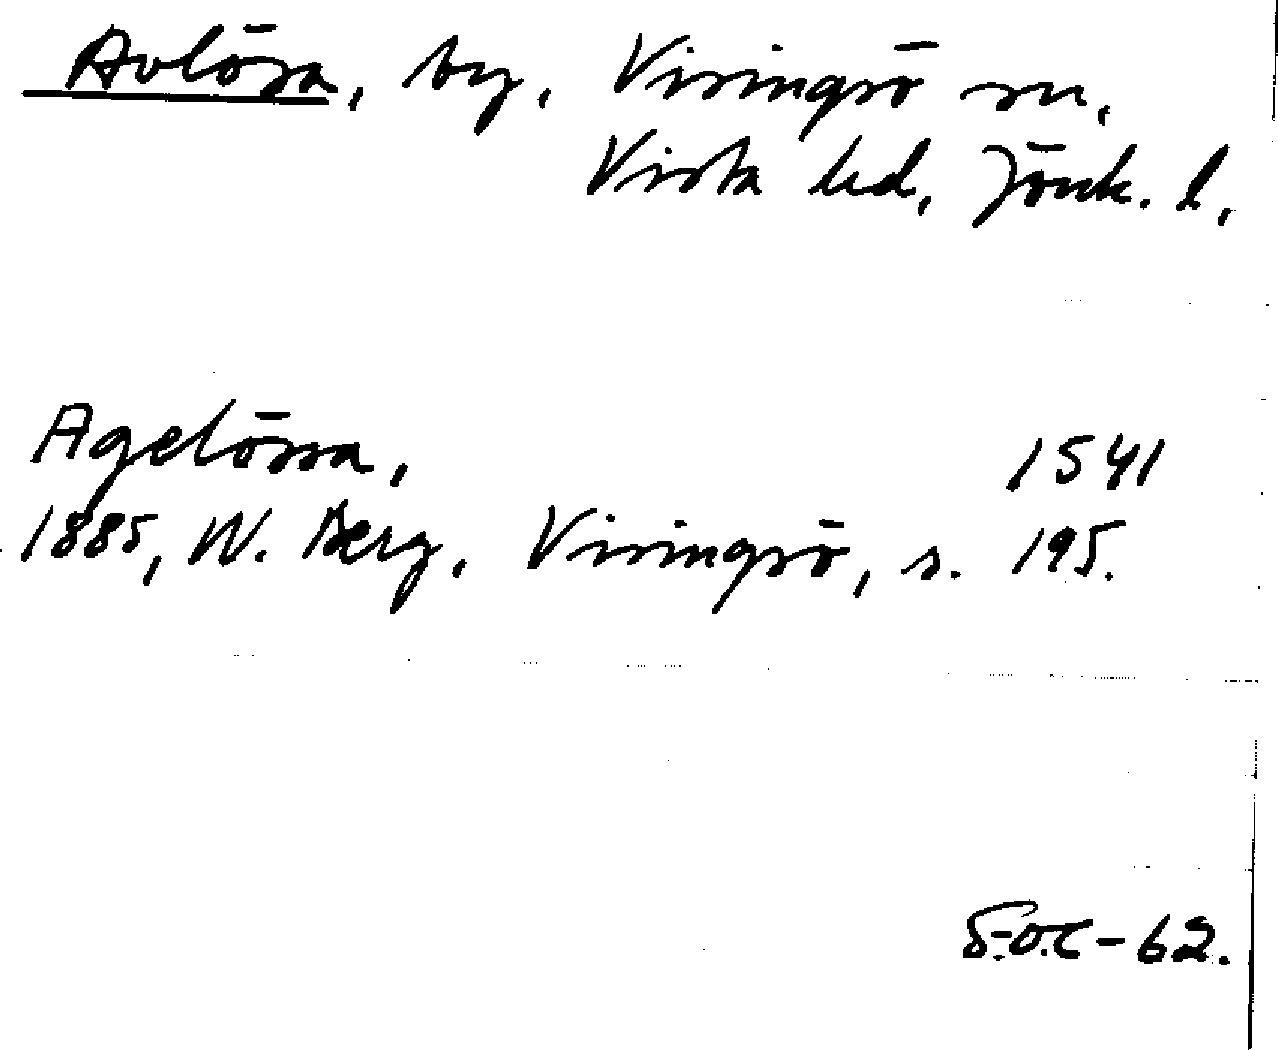 Avlösa, by, Visingsö sn,
Vista hd, Jönk. l.
Agelössa, 1541
1885, W. Berg, Visingsö, s. 195.
S.O.C - 62.